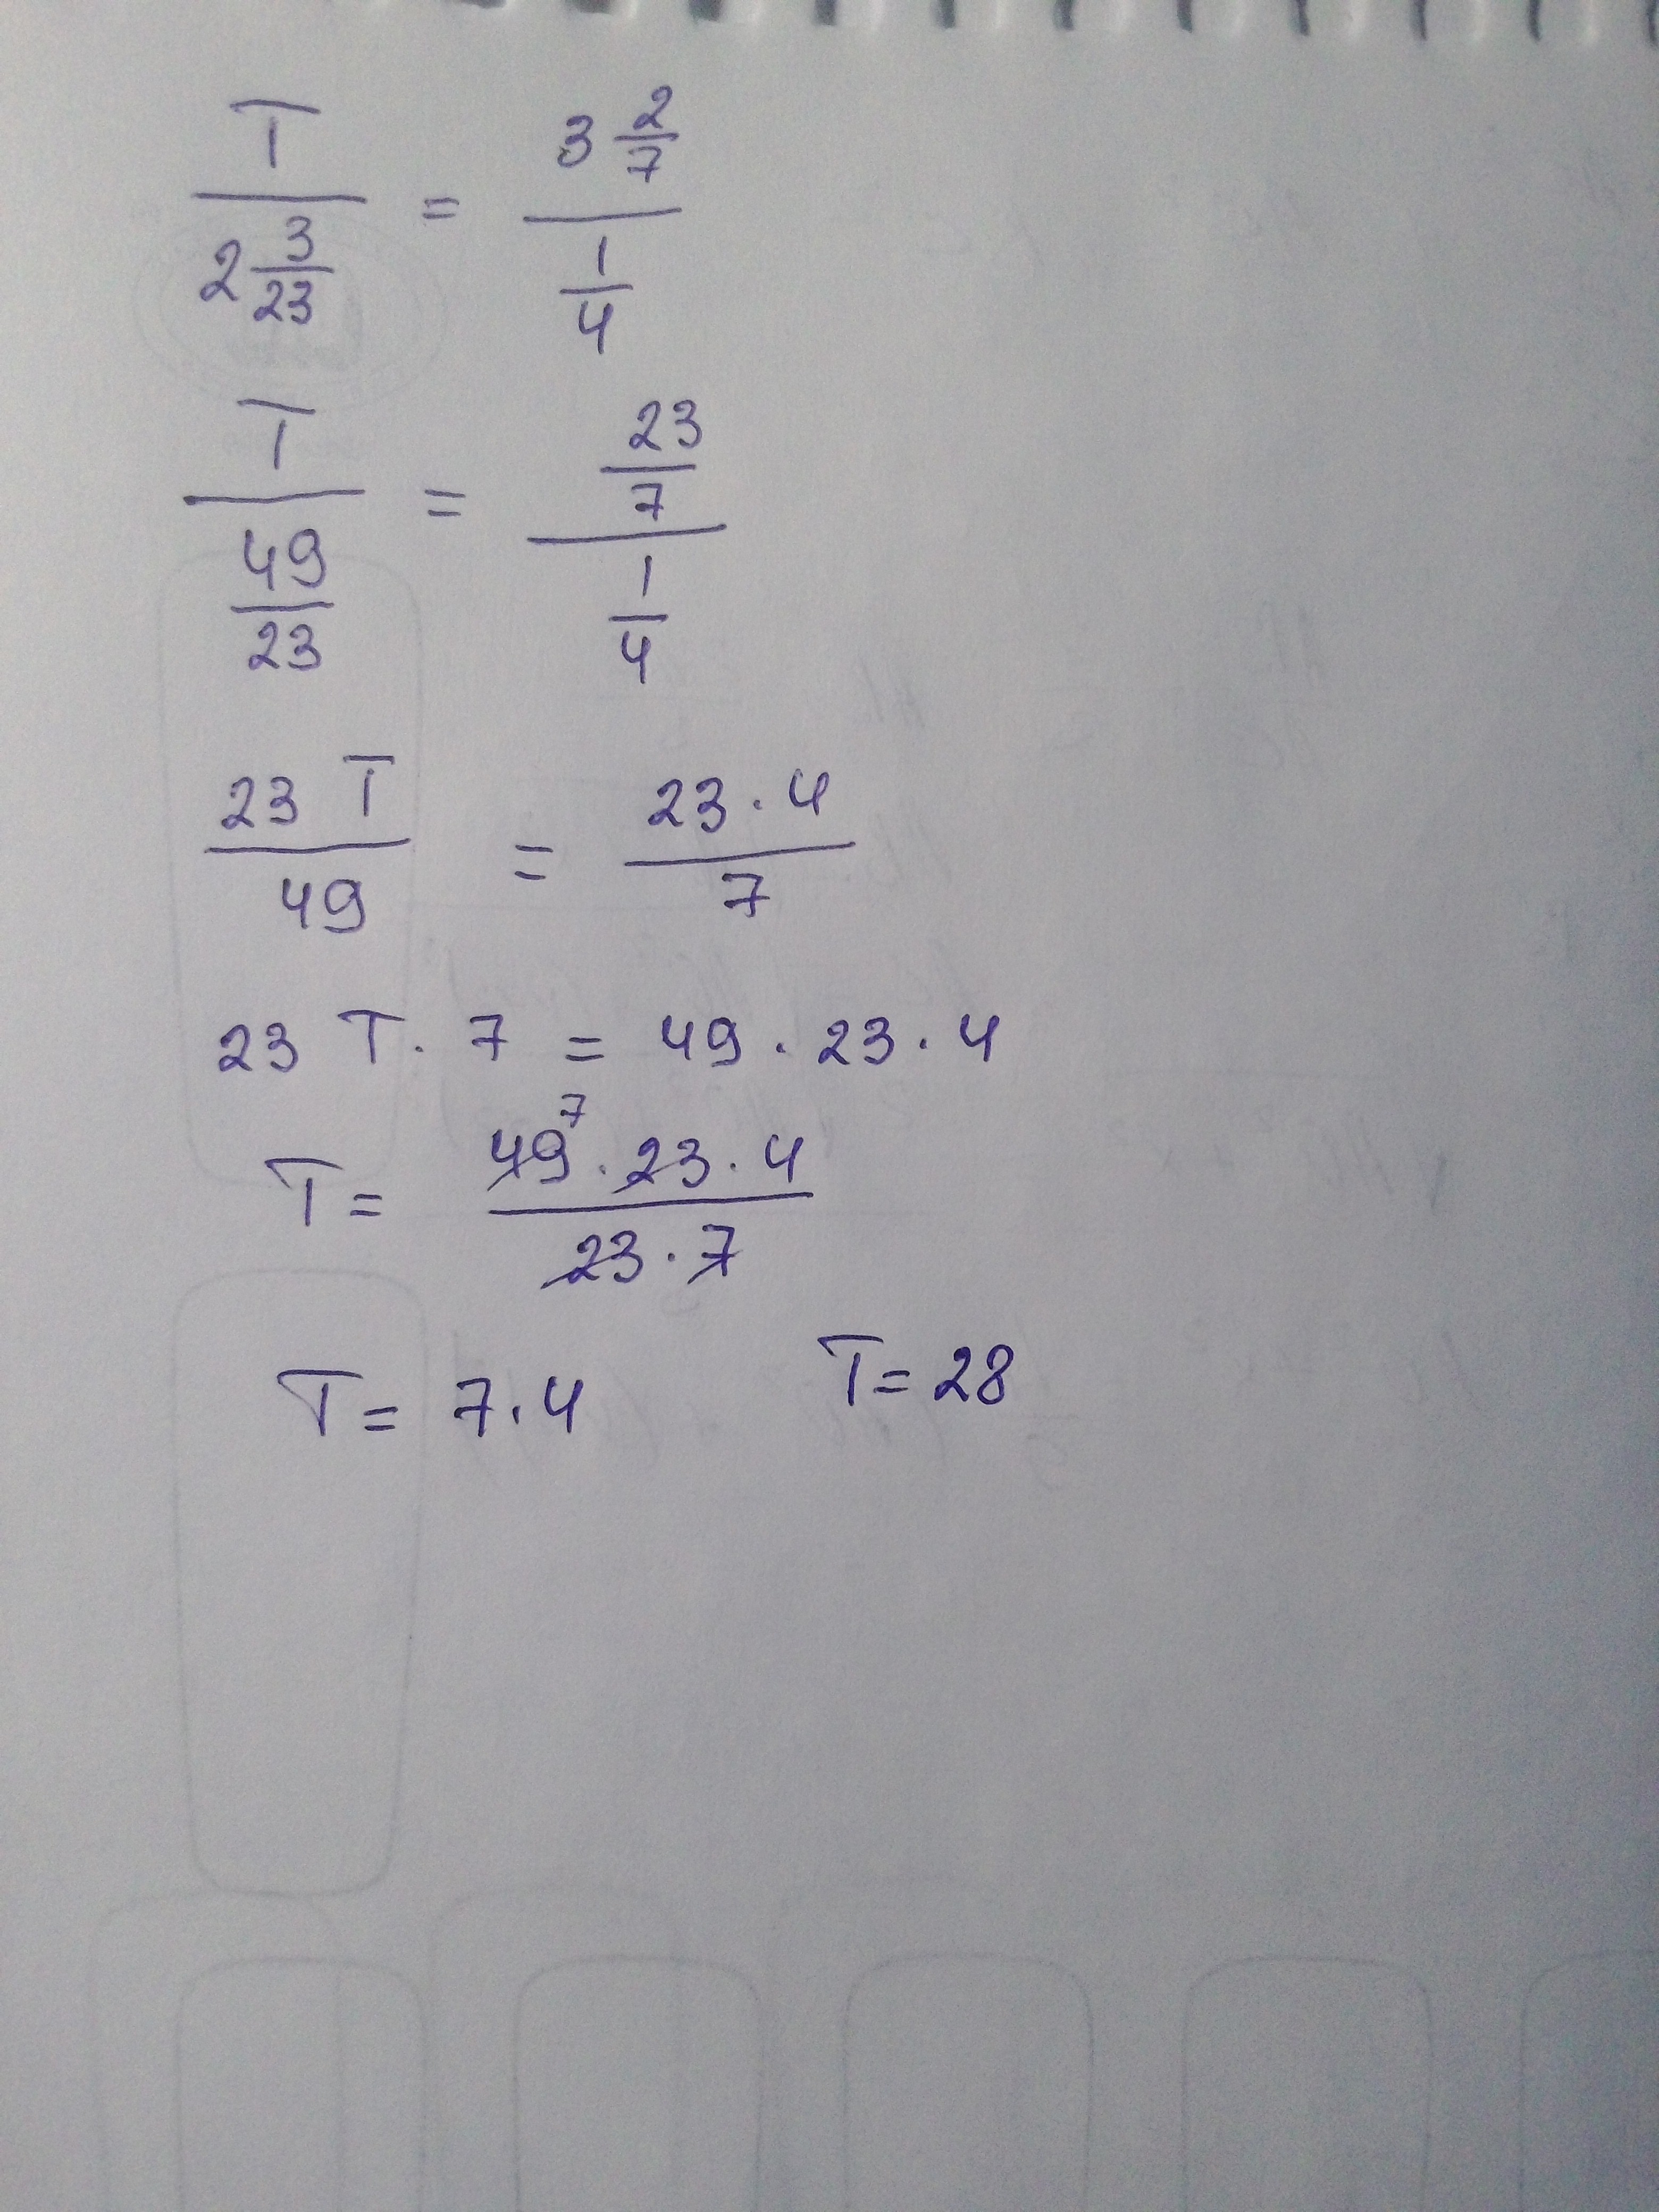 T / 2 3/23 = 3 2/7 / 1/4
T / 49/23 = 23/7 / 1/4
23 T / 49 = 23 · 4 / 7
23 T · 7 = 49 · 23 · 4
T = 49 7 · 23 · 4 / 23 · 7
T = 7 · 4 T = 28